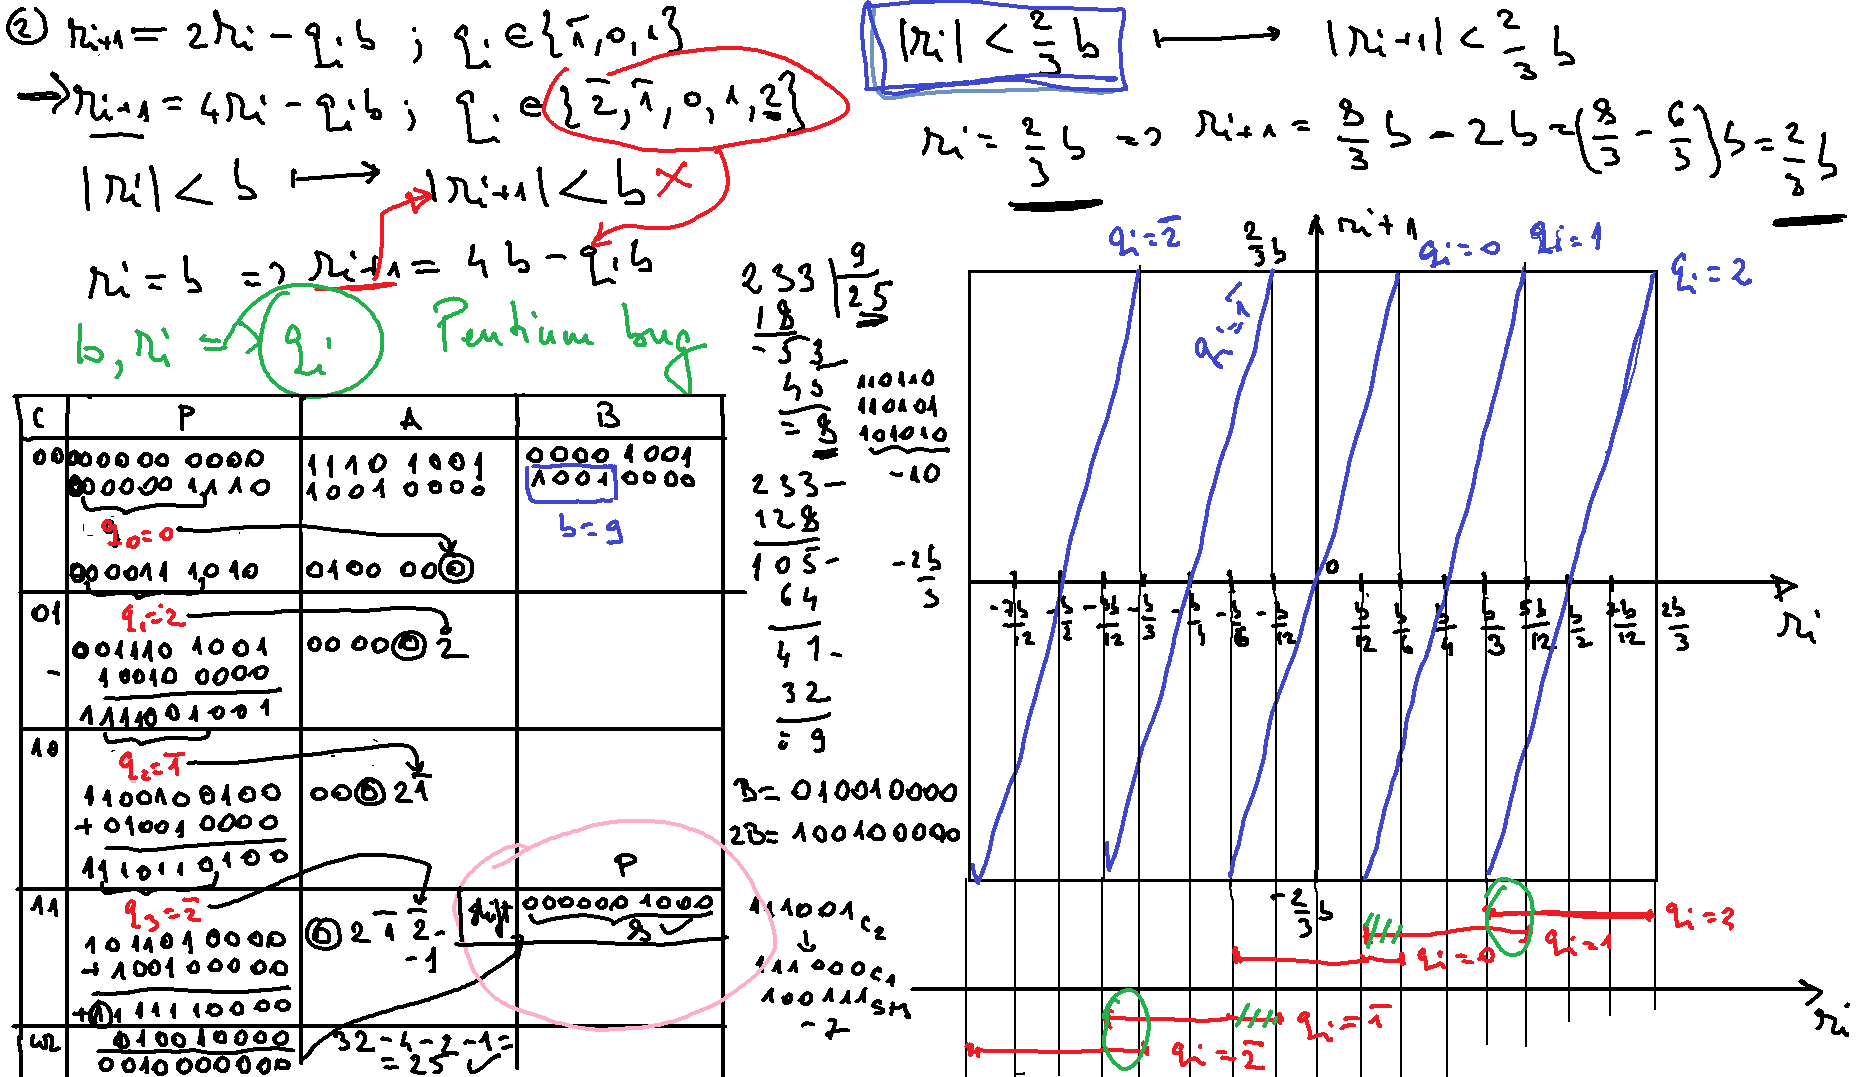 ② ri+1 = 2ri - qib ; qi ∈ {1̄, 0, 1}
⇒ ri+1 = 4ri - qib ; qi ∈ {2̄, 1̄, 0, 1, 2}
|ri| < b ⟼ |ri+1| < b ×
ri = b => ri+1 = 4b - qib
b, ri => qi Pentium bug
|ri| < 2/3 b ⟼ |ri+1| < 2/3 b
ri = 2/3 b => ri+1 = 8/3 b - 2b = (8/3 - 6/3) b = 2/3 b
C P A B
00 000000 0000 1110 1001 0000 1001
000000 1110 1001 0000 1001 0000
q0=0 b=9
000011 1010 0100 000
01 q1=2
001110 1001 0000 0 2
- 10010 0000
1111001001
10 q2=1̄
1100100100 000 21̄
+ 01001 0000
1110110100
11 q3=2̄
1011010000 0 2 1̄ 2̄ -
+ 1001 00000 -1
1 1111 0000
shift P
000000 1000
8 ✓
+ 010010000 32-4-2-1=
0010000000 = 25 ✓
233 | 9
18 25
- 53
45
= 8
110110
110101
101010
-10
233 -
128
105 -
64
41 -
32
= 9
B = 010010000
2B = 100100000
111001C2
↓
111000C1
100111SM
-7
ri+1
2/3 b
qi=2̄
qi=1̄
qi=0
qi=1
qi=2
0
-7b/12 -b/2 -5b/12 -b/3 -b/4 -b/6 -b/12 b/12 b/6 b/4 b/3 5b/12 b/2 7b/12 2b/3
-2b/3
ri
-2/3 b
qi=2
qi=1
qi=0
qi=1̄
qi=2̄
ri